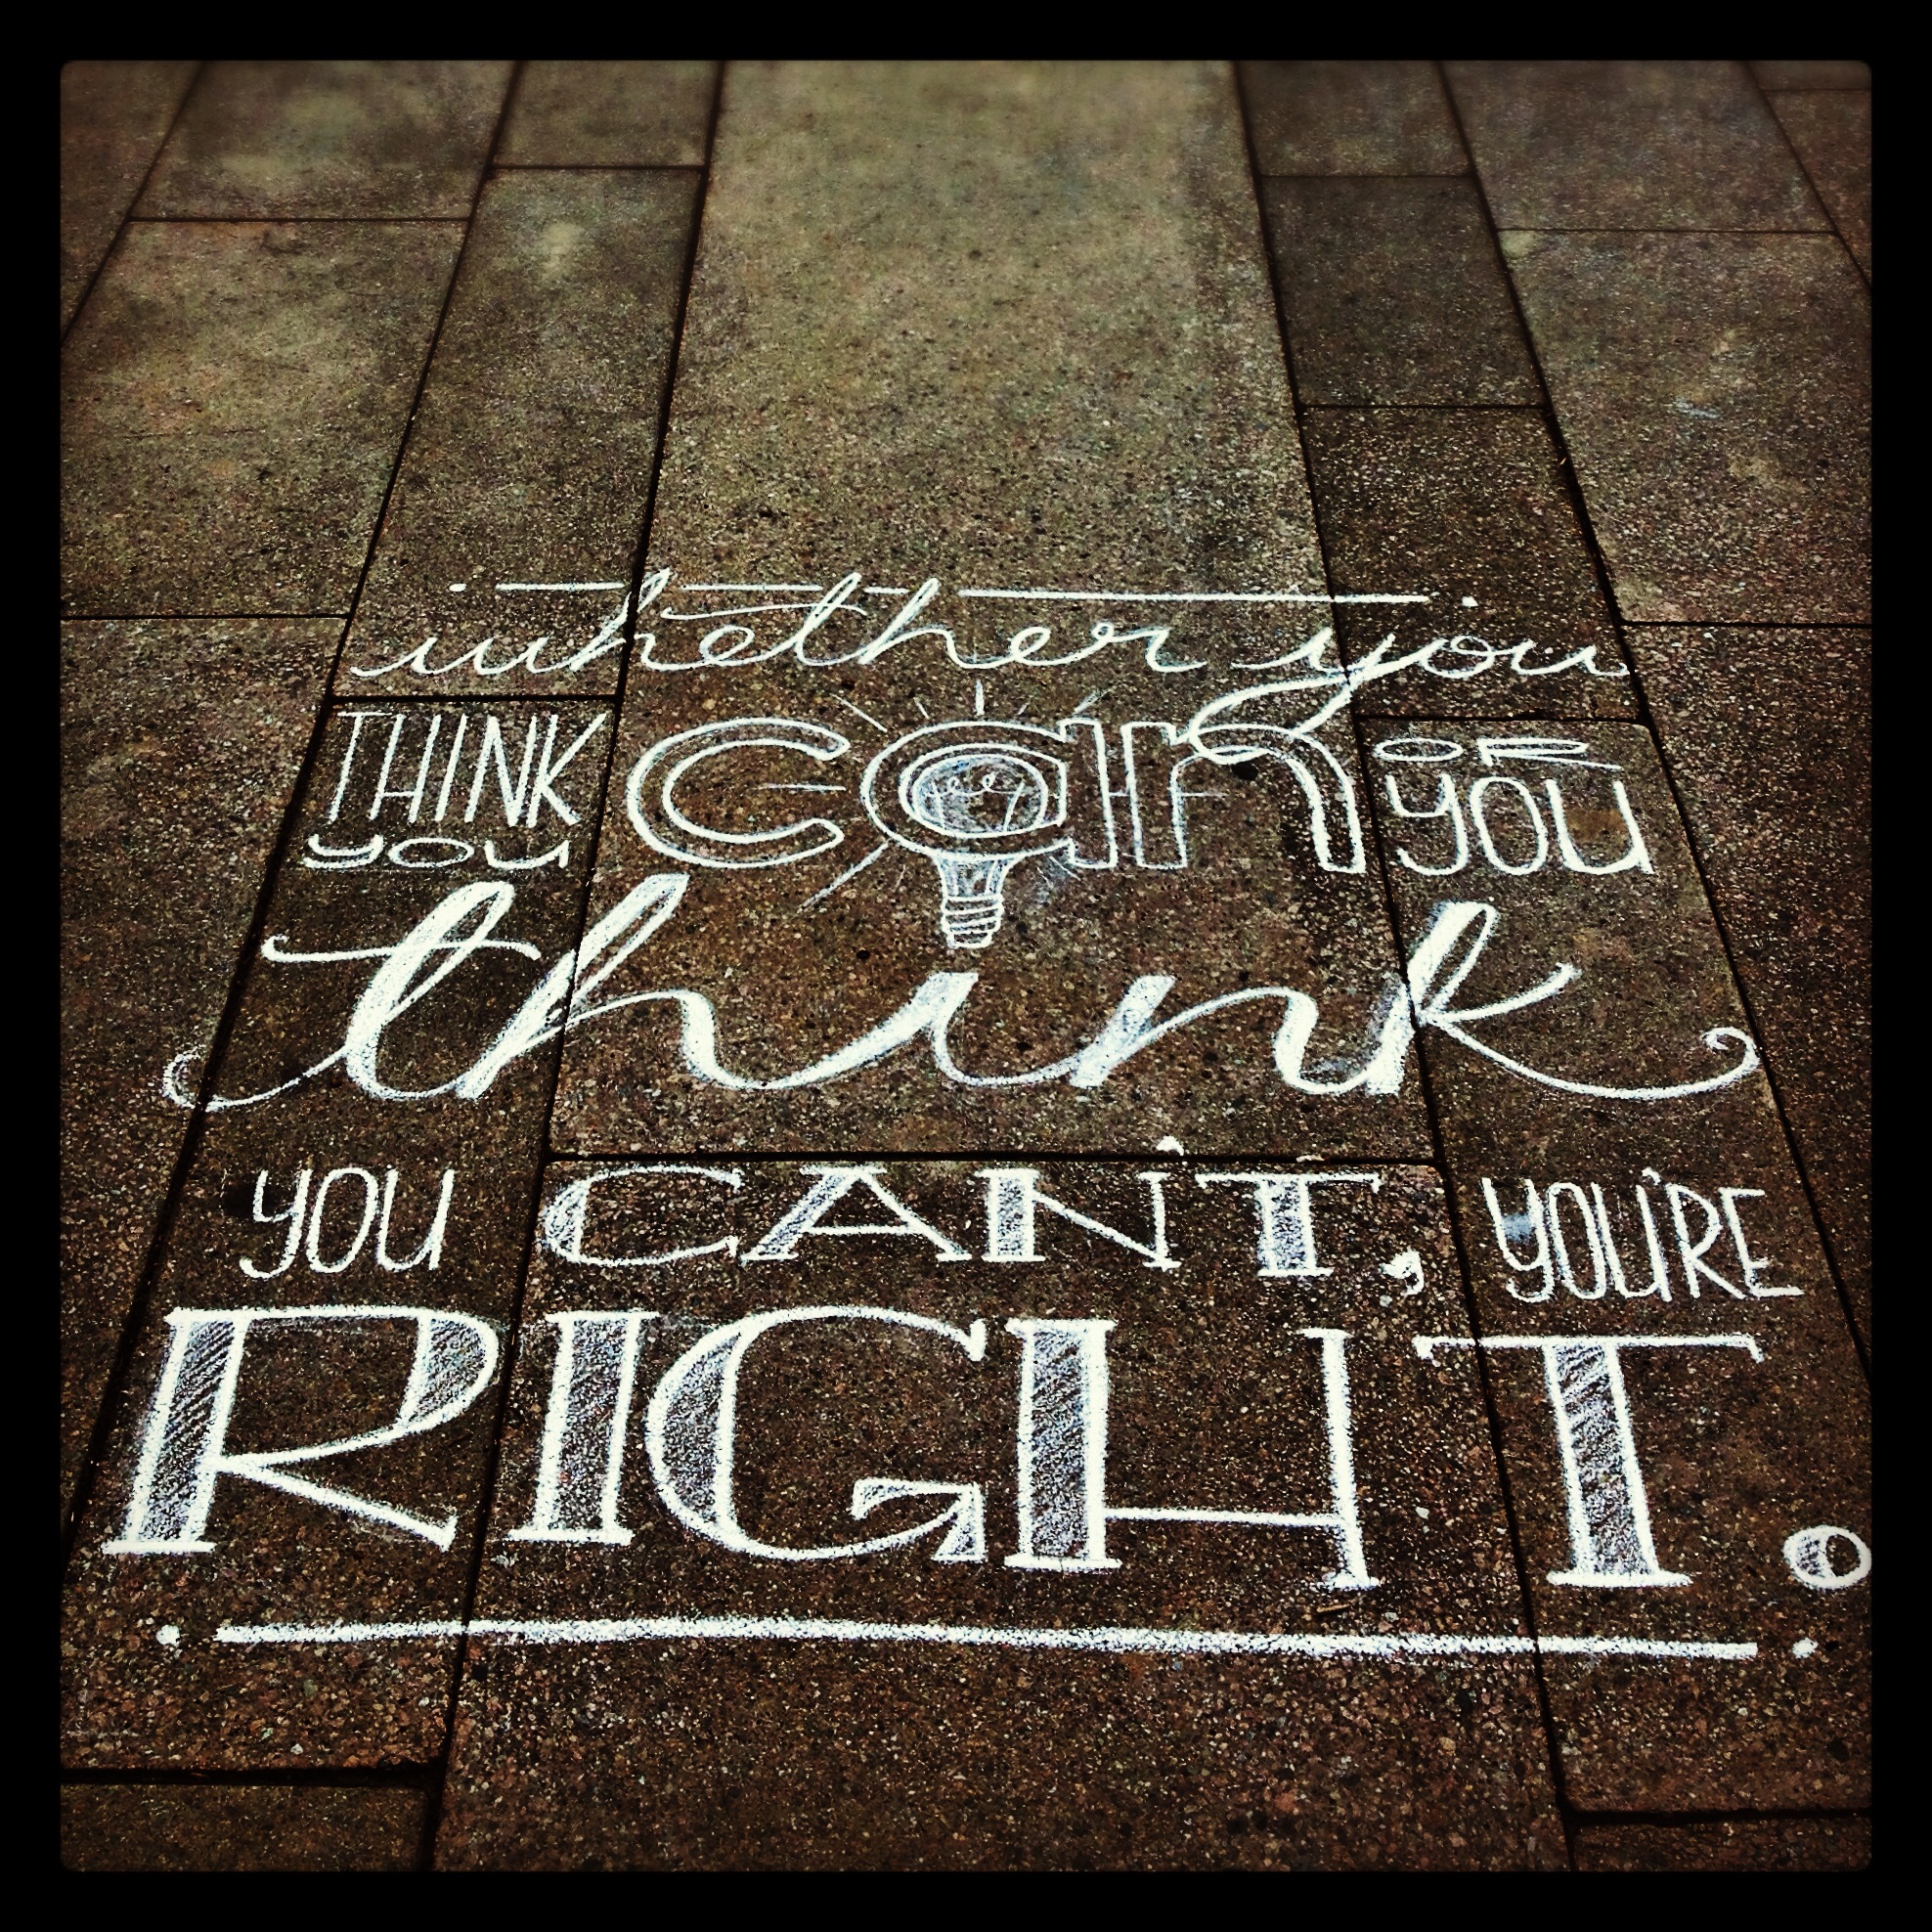 whether you
THINK you can OR YOU
think
YOU CAN'T, YOU'RE
RIGHT.